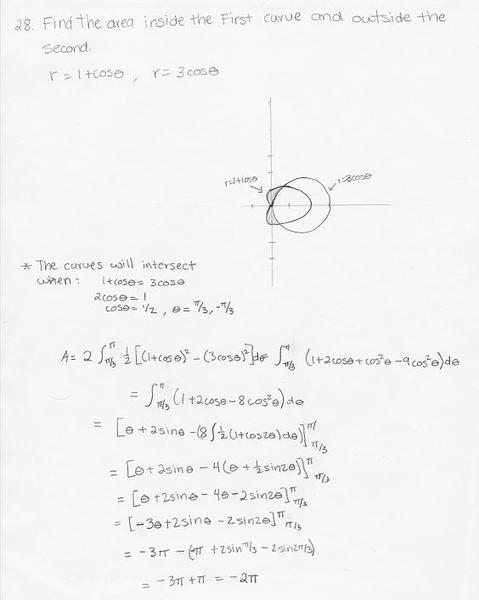 28. Find the area inside the First curve and outside the
second.
r = 1 + cosθ , r = 3cosθ
r=1+cosθ
r=3cosθ
* The curves will intersect
when: 1+cosθ = 3cosθ
2cosθ = 1
cosθ = 1/2 , θ = π/3, -π/3
A = 2 ∫_{π/3}^{π} 1/2 [(1+cosθ)² - (3cosθ)²] dθ = ∫_{π/3}^{π} (1+2cosθ+cos²θ - 9cos²θ) dθ
= ∫_{π/3}^{π} (1+2cosθ - 8cos²θ) dθ
= [θ + 2sinθ - (8 ∫ 1/2 (1+cos2θ) dθ)]_{π/3}^{π}
= [θ + 2sinθ - 4(θ + 1/2 sin2θ)]_{π/3}^{π}
= [θ + 2sinθ - 4θ - 2sin2θ]_{π/3}^{π}
= [-3θ + 2sinθ - 2sin2θ]_{π/3}^{π}
= -3π - (-π + 2sin π/3 - 2sin 2π/3)
= -3π + π = -2π